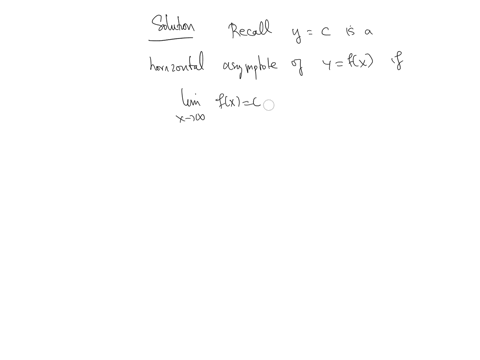 Solution Recall y = c is a
horizontal asymptote of y = f(x) if
lim f(x) = c
x→∞